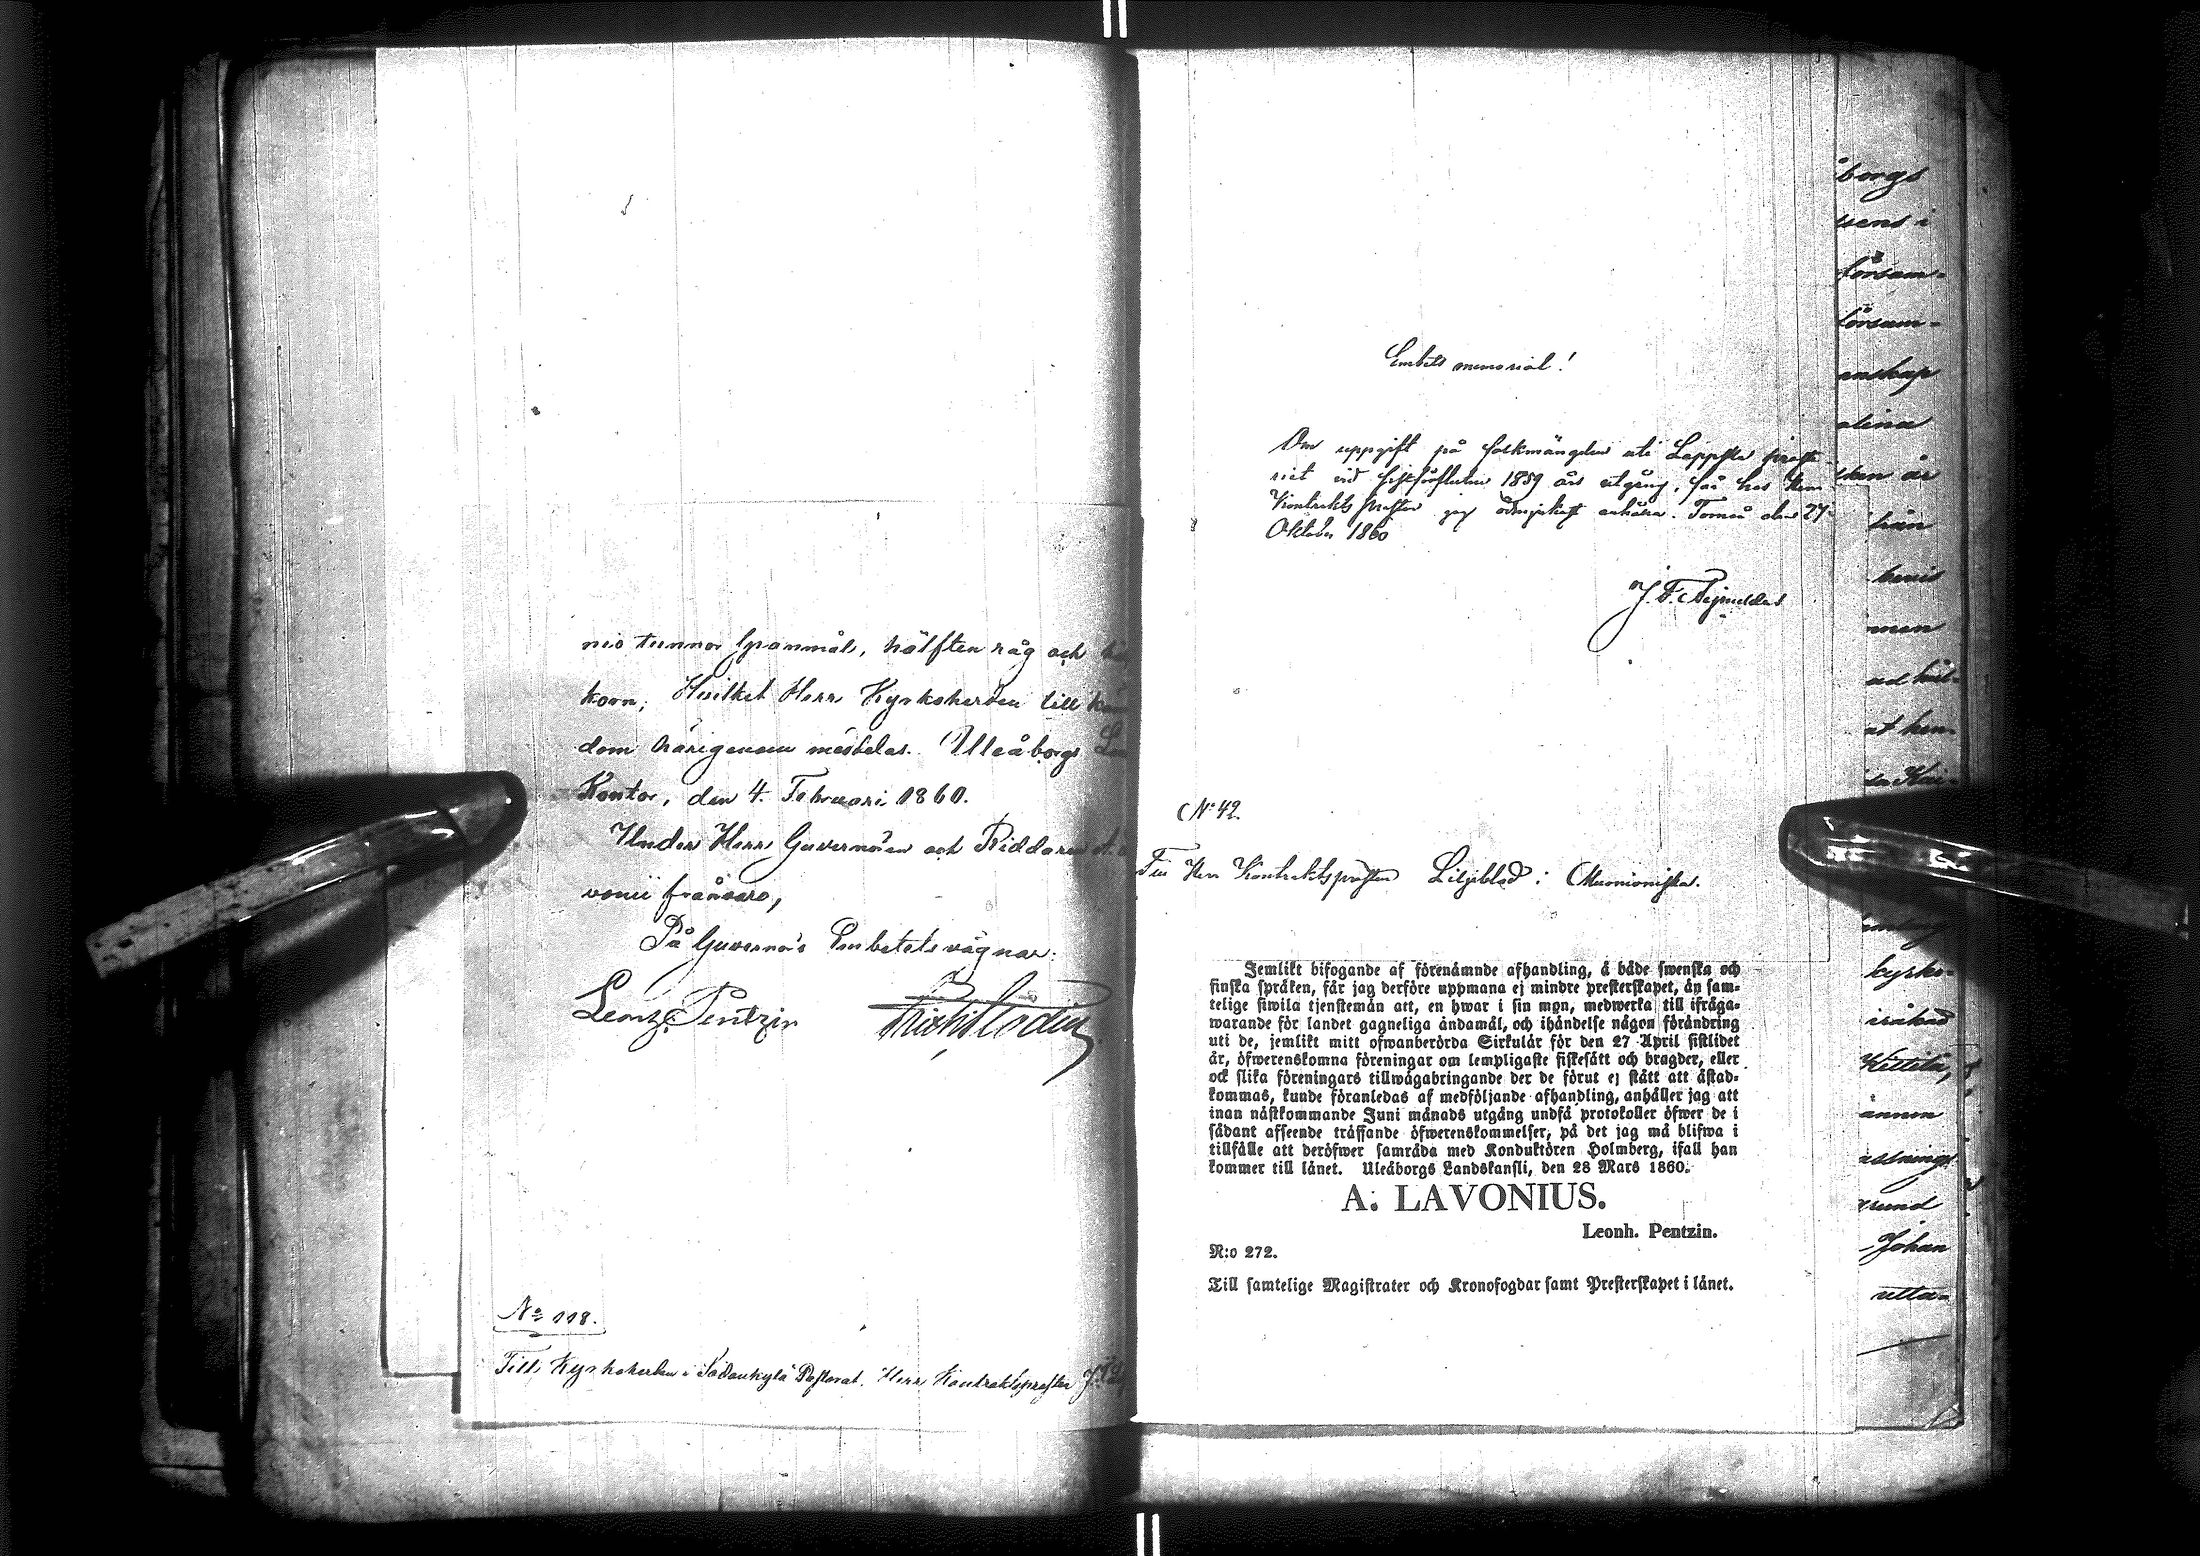 nes tunnor spannmål, hälften råg och
korn; Hvilket Herr Kyrkoherden till
dom härigenom meddelas. Uleåborgs
Kontor, den 4. Februari 1860.
Under Herr Guvernören och Riddaren
vonii frånvaro,
På Guvernörs Embetets vägnar:
Leonh. Pentzin
No 118.
Till Kyrkoherden i Sodankylä Pastorat, Herr Kontraktsprosten
Embets memorial!
Om uppgift på folkmängden uti Lappska proste-
riet vid sistförflutne 1859 års utgång, får hos Herr
Kontrakts Prosten jag ödmjukast anhålla. Torneå den 27
Oktober 1860
No 42.
Till Herr Kontraktsprosten Liljeblad i Muonioniska.
Jemlikt bifogande af förenämnde afhandling, å både swenska och
finska språken, får jag derföre uppmana ej mindre presterskapet, än sam-
telige siwila tjenstemän att, en hwar i sin mon, medwerka till ifråga-
warande för landet gagneliga ändamål, och ihändelse någon förändring
uti de, jemlikt mitt ofwanberörda Sirkulär för den 27 April sistlidet
år, öfwerenskomna föreningar om lempligaste fiskesätt och bragder, eller
ock slika föreningars tillwägabringande der de förut ej stått att åstad-
kommas, kunde föranledas af medföljande afhandling, anhåller jag att
inan nästkommande Juni månads utgång undfå protokoller öfwer de i
sådant afseende träffande öfwerenskommelser, på det jag må blifwa i
tillfälle att deröfwer samråda med Konduktören Holmberg, ifall han
kommer till länet. Uleåborgs Landskansli, den 28 Mars 1860.
A. LAVONIUS.
Leonh. Pentzin.
N:o 272.
Till samtelige Magistrater och Kronofogdar samt Presterskapet i länet.
borgs
församl-
församl-
enskap
hans
men
kyrko-
Kittilä,
Johan